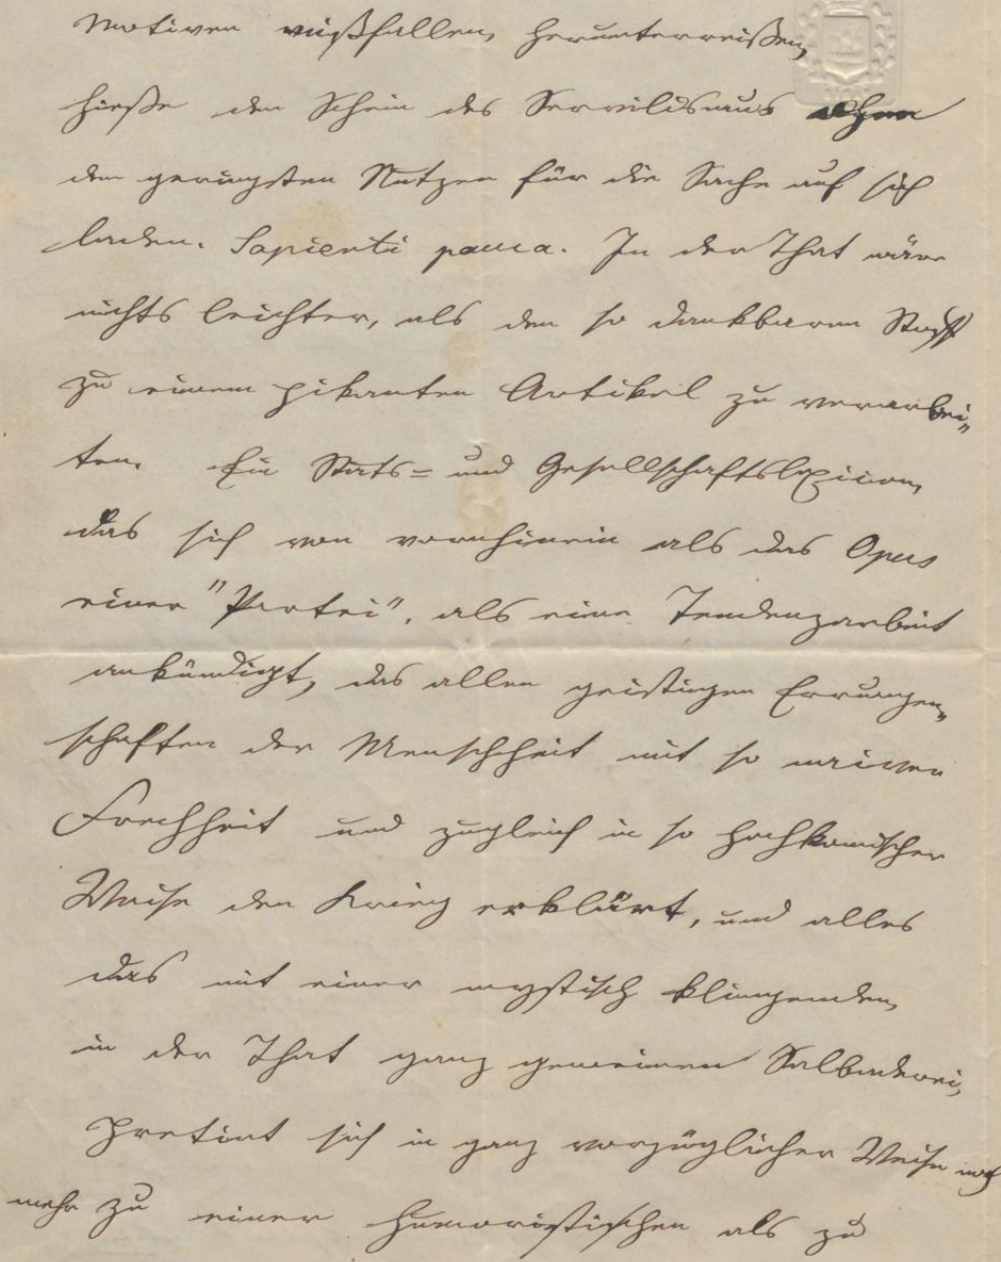 Motiven mißfallen, herunterreißen,
hieße den Schein des Servilismus ohne
den geringsten Nutzen für die Sache auf sich
laden. Sapienti pauca. In der That wäre
nichts leichter, als den so dankbaren Stoff
zu einem pikanten Artikel zu verarbei„
ten. Ein Stats= und Gesellschaftslexicon,
das sich von vornhinein als das Opus
einer "Partei", als eine Tendenzarbeit
ankündigt, das allen geistigen Errungen„
schaften der Menschheit mit so naiver
Frechheit und zugleich in so hochkomischer
Weise den Krieg erklärt, und alles
das mit einer mystisch klingenden,
in der That ganz gemeinen Salbaderei,
sich in ganz vorzüglicher Weise noch
mehr zu einer humoristischen als zu